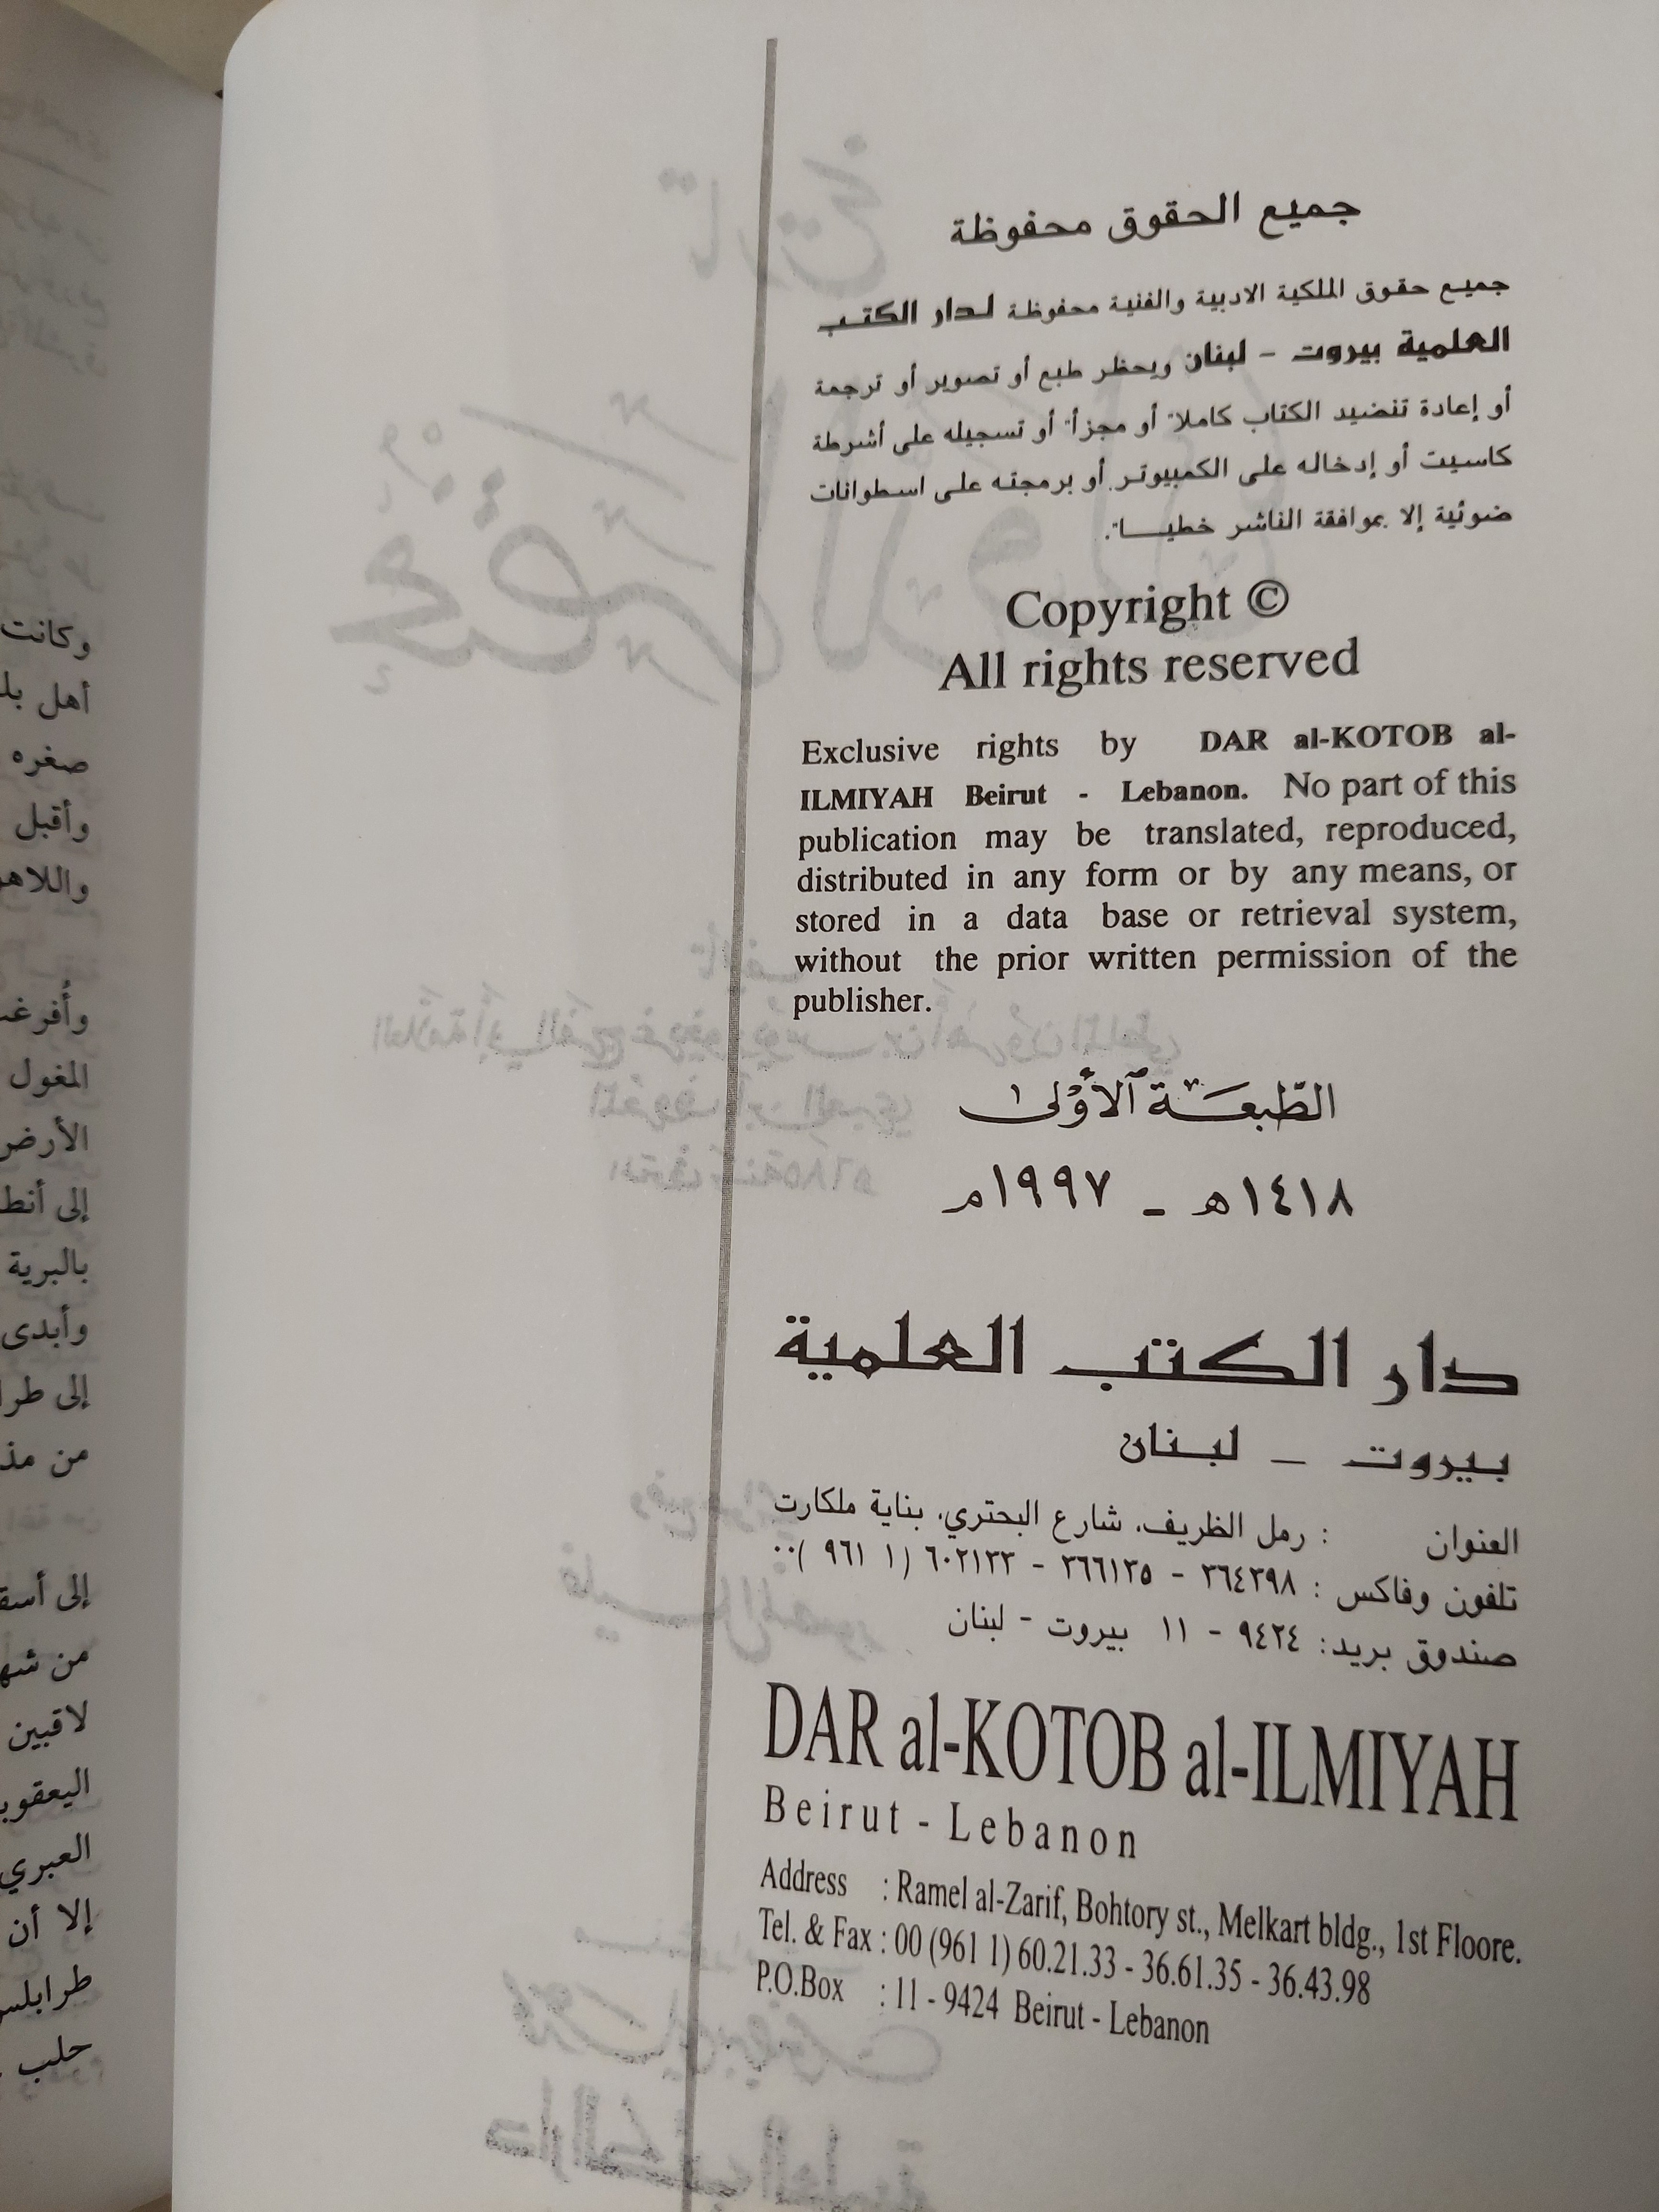 جميع الحقوق محفوظة
جميع حقوق الملكية الادبية والفنية محفوظة لدار الكتب
العلمية بيروت - لبنان ويحظر طبع أو تصوير أو ترجمة
أو إعادة تنضيد الكتاب كاملاً أو مجزأً أو تسجيله على أشرطة
كاسيت أو إدخاله على الكمبيوتر أو برمجته على اسطوانات
ضوئية إلا بموافقة الناشر خطياً.
Copyright ©
All rights reserved
Exclusive rights by DAR al-KOTOB al-
ILMIYAH Beirut - Lebanon. No part of this
publication may be translated, reproduced,
distributed in any form or by any means, or
stored in a data base or retrieval system,
without the prior written permission of the
publisher.
الطّبعَة الأولى
١٤١٨هـ - ١٩٩٧م
دار الكتب العلمية
بيروت - لبنان
العنوان : رمل الظريف، شارع البحتري، بناية ملكارت
تلفون وفاكس : ٣٦٤٣٩٨ - ٣٦٦١٣٥ - ٦٠٢١٣٣ (١ ٩٦١ )٠٠
صندوق بريد: ٩٤٢٤ - ١١ بيروت - لبنان
DAR al-KOTOB al-ILMIYAH
Beirut - Lebanon
Address : Ramel al-Zarif, Bohtory st., Melkart bldg., 1st Floore.
Tel. & Fax : 00 (961 1) 60.21.33 - 36.61.35 - 36.43.98
P.O.Box : 11 - 9424 Beirut - Lebanon
وكانت
أهل
صغره
وأقبل
المغول
الأرض
إلى
بالبرية
وأبدى
إلى
من
إلى
من
لاقيين
العبري
إلا أن
طرابلس
حلب